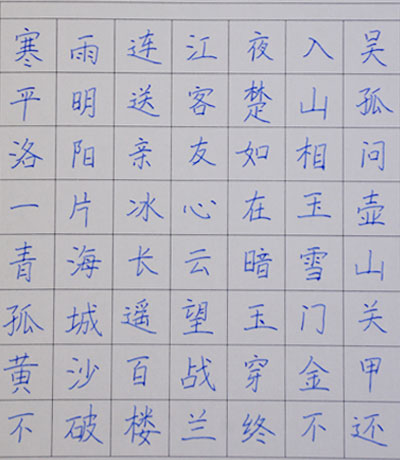 寒雨连江夜入吴
平明送客楚山孤
洛阳亲友如相问
一片冰心在玉壶
青海长云暗雪山
孤城遥望玉门关
黄沙百战穿金甲
不破楼兰终不还